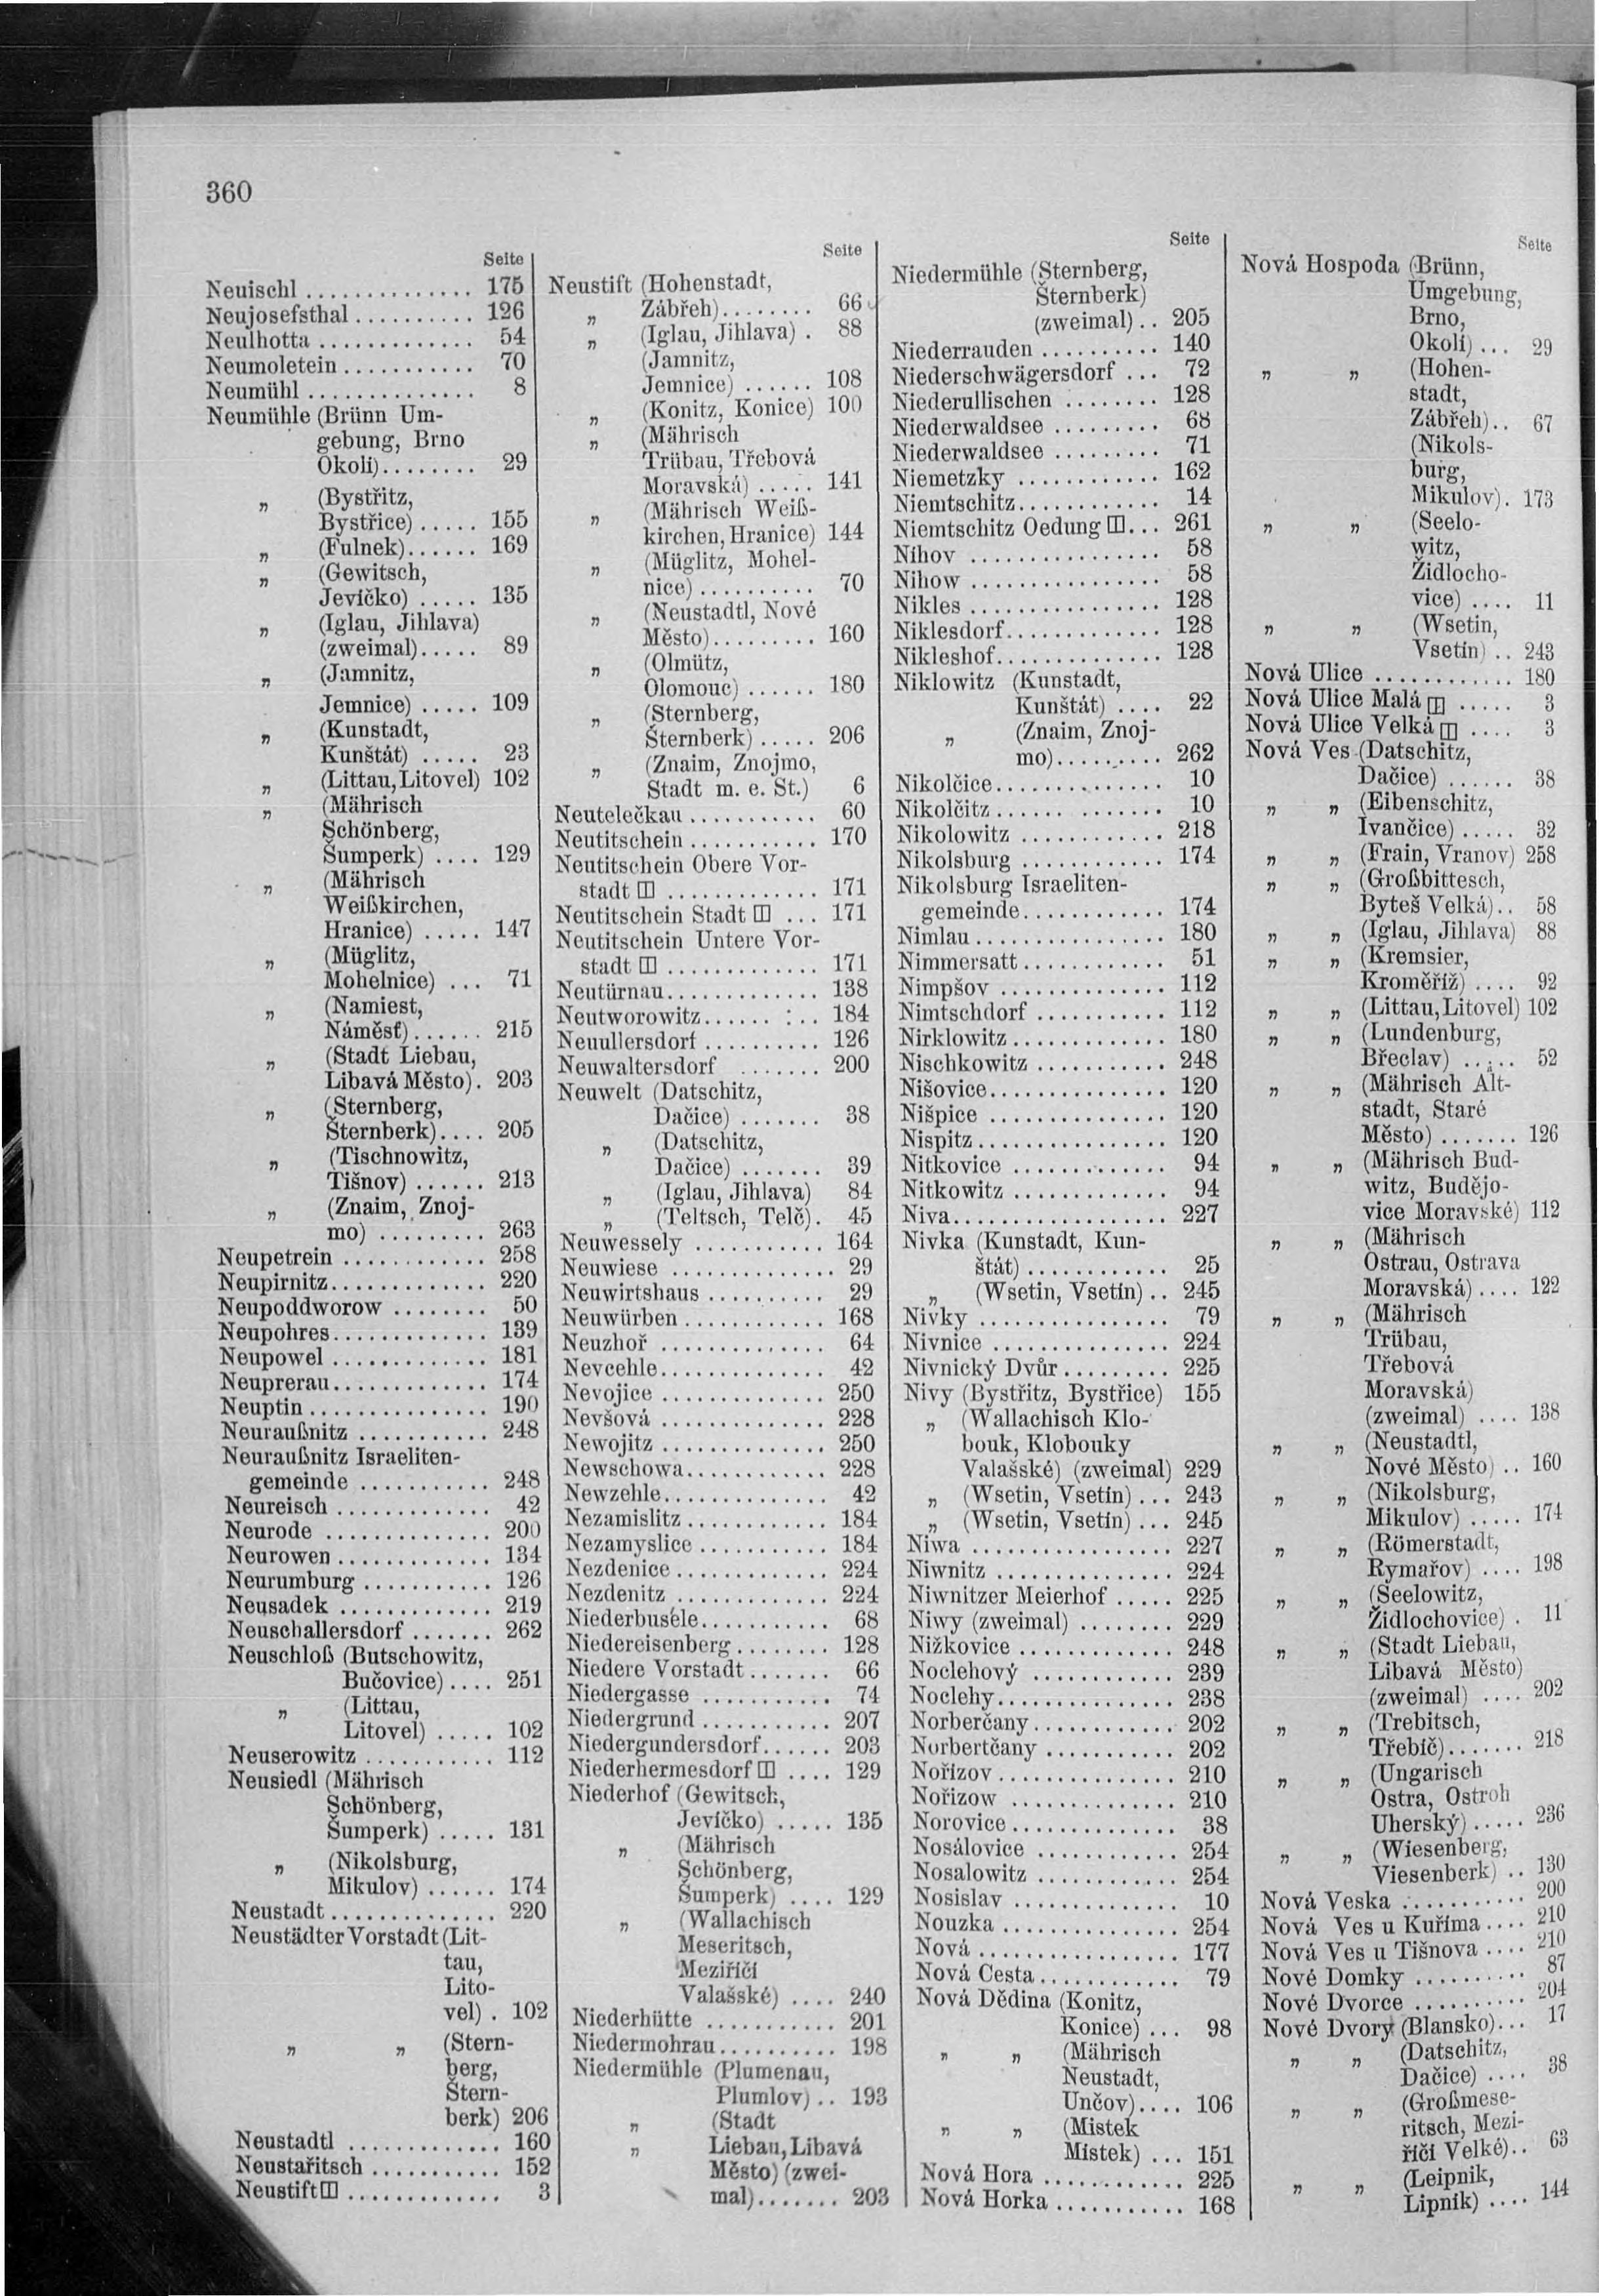 360
Seite
Neuischl ............... 175
Neujosefsthal .......... 126
Neulhotta ............. 54
Neumoletein ........... 70
Neumühl .............. 8
Neumühle (Brünn Um-
gebung, Brno
Okolí)........ 29
„ (Bystřitz,
Bystřice) ..... 155
„ (Fulnek)...... 169
„ (Gewitsch,
Jevíčko) ..... 135
„ (Iglau, Jihlava)
(zweimal)..... 89
„ (Jamnitz,
Jemnice) ..... 109
„ (Kunstadt,
Kunštát) ..... 23
„ (Littau, Litovel) 102
„ (Mährisch
Schönberg,
Šumperk) .... 129
„ (Mährisch
Weißkirchen,
Hranice) ..... 147
„ (Müglitz,
Mohelnice) ... 71
„ (Namiest,
Náměsť) ...... 215
„ (Stadt Liebau,
Libavá Město). 203
„ (Sternberg,
Šternberk).... 205
„ (Tischnowitz,
Tišnov) ...... 213
„ (Znaim, Znoj-
mo) ......... 263
Neupetrein ............ 258
Neupirnitz............. 220
Neupoddworow ........ 50
Neupohres............. 139
Neupowel ............. 181
Neuprerau............. 174
Neuptin ............... 190
Neuraußnitz ........... 248
Neuraußnitz Israeliten-
gemeinde ........... 248
Neureisch ............. 42
Neurode .............. 200
Neurowen ............. 134
Neurumburg ........... 126
Neusadek ............. 219
Neuschallersdorf ....... 262
Neuschloß (Butschowitz,
Bučovice) .... 251
„ (Littau,
Litovel) ..... 102
Neuserowitz ........... 112
Neusiedl (Mährisch
Schönberg,
Šumperk) ..... 131
„ (Nikolsburg,
Mikulov) ...... 174
Neustadt .............. 220
Neustädter Vorstadt (Lit-
tau,
Lito-
vel) . 102
„ „ (Stern-
berg,
Štern-
berk) 206
Neustadtl ............. 160
Neustařitsch ........... 152
Neustift ⊞ ............. 3
Seite
Neustift (Hohenstadt,
Zábřeh)........ 66
„ (Iglau, Jihlava) . 88
„ (Jamnitz,
Jemnice) ...... 108
„ (Konitz, Konice) 100
„ (Mährisch
Trübau, Třebová
Moravská) ..... 141
„ (Mährisch Weiß-
kirchen, Hranice) 144
„ (Müglitz, Mohel-
nice) .......... 70
„ (Neustadtl, Nové
Město)......... 160
„ (Olmütz,
Olomouc) ...... 180
„ (Sternberg,
Šternberk) ..... 206
„ (Znaim, Znojmo,
Stadt m. e. St.) 6
Neutelečkau ........... 60
Neutitschein ........... 170
Neutitschein Obere Vor-
stadt ⊞ ............. 171
Neutitschein Stadt ⊞ ... 171
Neutitschein Untere Vor-
stadt ⊞ ............. 171
Neutürnau............. 138
Neutworowitz...... ... 184
Neuullersdorf .......... 126
Neuwaltersdorf ....... 200
Neuwelt (Datschitz,
Dačice) ....... 38
„ (Datschitz,
Dačice) ....... 39
„ (Iglau, Jihlava) 84
„ (Teltsch, Telč). 45
Neuwessely ........... 164
Neuwiese ............. 29
Neuwirtshaus .......... 29
Neuwürben ............ 168
Neuzhoř .............. 64
Nevcehle.............. 42
Nevojice .............. 250
Nevšová .............. 228
Newojitz .............. 250
Newschowa............ 228
Newzehle.............. 42
Nezamislitz ............ 184
Nezamyslice ........... 184
Nezdenice ............. 224
Nezdenitz ............. 224
Niederbusele........... 68
Niedereisenberg ........ 128
Niedere Vorstadt ....... 66
Niedergasse ........... 74
Niedergrund ........... 207
Niedergundersdorf...... 203
Niederhermesdorf ⊞ .... 129
Niederhof (Gewitsch,
Jevíčko) ..... 135
„ (Mährisch
Schönberg,
Šumperk) .... 129
„ (Wallachisch
Meseritsch,
Meziříčí
Valašské) .... 240
Niederhütte ........... 201
Niedermohrau.......... 198
Niedermühle (Plumenau,
Plumlov) .. 193
„ (Stadt
„ Liebau, Libavá
Město) (zwei-
mal)....... 203
Seite
Niedermühle (Sternberg,
Šternberk)
(zweimal) .. 205
Niederrauden .......... 140
Niederschwägersdorf ... 72
Niederullischen ........ 128
Niederwaldsee ......... 68
Niederwaldsee ......... 71
Niemetzky ............ 162
Niemtschitz............ 14
Niemtschitz Oedung ⊞... 261
Níhov ................ 58
Nihow ................ 58
Nikles ................ 128
Niklesdorf............. 128
Nikleshof.............. 128
Niklowitz (Kunstadt,
Kunštát) .... 22
„ (Znaim, Znoj-
mo).......... 262
Nikolčice.............. 10
Nikolčitz .............. 10
Nikolowitz ............ 218
Nikolsburg ............ 174
Nikolsburg Israeliten-
gemeinde............ 174
Nimlau ................ 180
Nimmersatt............ 51
Nimpšov .............. 112
Nimtschdorf ........... 112
Nirklowitz ............. 180
Nischkowitz ........... 248
Nišovice............... 120
Nišpice ............... 120
Nispitz ................ 120
Nitkovice ............. 94
Nitkowitz ............. 94
Niva.................. 227
Nivka (Kunstadt, Kun-
štát) ............ 25
„ (Wsetin, Vsetín) .. 245
Nivky ................ 79
Nivnice ............... 224
Nivnický Dvůr ......... 225
Nivy (Bystřitz, Bystřice) 155
„ (Wallachisch Klo-
bouk, Klobouky
Valašské) (zweimal) 229
„ (Wsetin, Vsetín) ... 243
„ (Wsetin, Vsetín) ... 245
Niwa ................. 227
Niwnitz ............... 224
Niwnitzer Meierhof ..... 225
Niwy (zweimal) ........ 229
Nižkovice ............. 248
Noclehový ............ 239
Noclehy............... 238
Norberčany............ 202
Norbertčany ........... 202
Nořizov ............... 210
Nořizow .............. 210
Norovice .............. 38
Nosálovice ............ 254
Nosalowitz ............ 254
Nosislav .............. 10
Nouzka ............... 254
Nová ................. 177
Nová Cesta............ 79
Nová Dědina (Konitz,
Konice) ... 98
„ „ (Mährisch
Neustadt,
Unčov).... 106
„ „ (Mistek
Místek) ... 151
Nová Hora ............ 225
Nová Horka ........... 168
Seite
Nová Hospoda (Brünn,
Umgebung,
Brno,
Okolí) ... 29
„ „ (Hohen-
stadt,
Zábřeh) .. 67
(Nikols-
burg,
Mikulov) . 173
„ „ (Seelo-
witz,
Židlocho-
vice) .... 11
„ „ (Wsetin,
Vsetín) .. 243
Nová Ulice ............ 180
Nová Ulice Malá ⊞ ..... 3
Nová Ulice Velká ⊞ .... 3
Nová Ves (Datschitz,
Dačice) ...... 38
„ „ (Eibenschitz,
Ivančice) ..... 32
„ „ (Frain, Vranov) 258
„ „ (Großbittesch,
Byteš Velká).. 58
„ „ (Iglau, Jihlava) 88
„ „ (Kremsier,
Kroměříž) .... 92
„ „ (Littau, Litovel) 102
„ „ (Lundenburg,
Břeclav) ..... 52
„ „ (Mährisch Alt-
stadt, Staré
Město) ....... 126
„ „ (Mährisch Bud-
witz, Budějo-
vice Moravské) 112
„ „ (Mährisch
Ostrau, Ostrava
Moravská) .... 122
„ „ (Mährisch
Trübau,
Třebová
Moravská)
(zweimal) .... 138
„ „ (Neustadtl,
Nové Město) .. 160
„ „ (Nikolsburg,
Mikulov) ..... 174
„ „ (Römerstadt,
Rymařov) .... 198
„ „ (Seelowitz,
Židlochovice) . 11
„ „ (Stadt Liebau,
Libavá Město)
(zweimal) .... 202
„ „ (Trebitsch,
Třebíč)....... 218
„ „ (Ungarisch
Ostra, Ostroh
Uherský) ..... 236
„ „ (Wiesenberg,
Viesenberk) .. 130
Nová Veska .......... 200
Nová Ves u Kuřima .... 210
Nová Ves u Tišnova .... 210
Nové Domky .......... 87
Nové Dvorce .......... 204
Nové Dvory (Blansko)... 17
„ „ (Datschitz,
Dačice) .... 38
„ „ (Großmese-
ritsch, Mezi-
říčí Velké).. 63
„ „ (Leipnik,
Lipník) .... 144